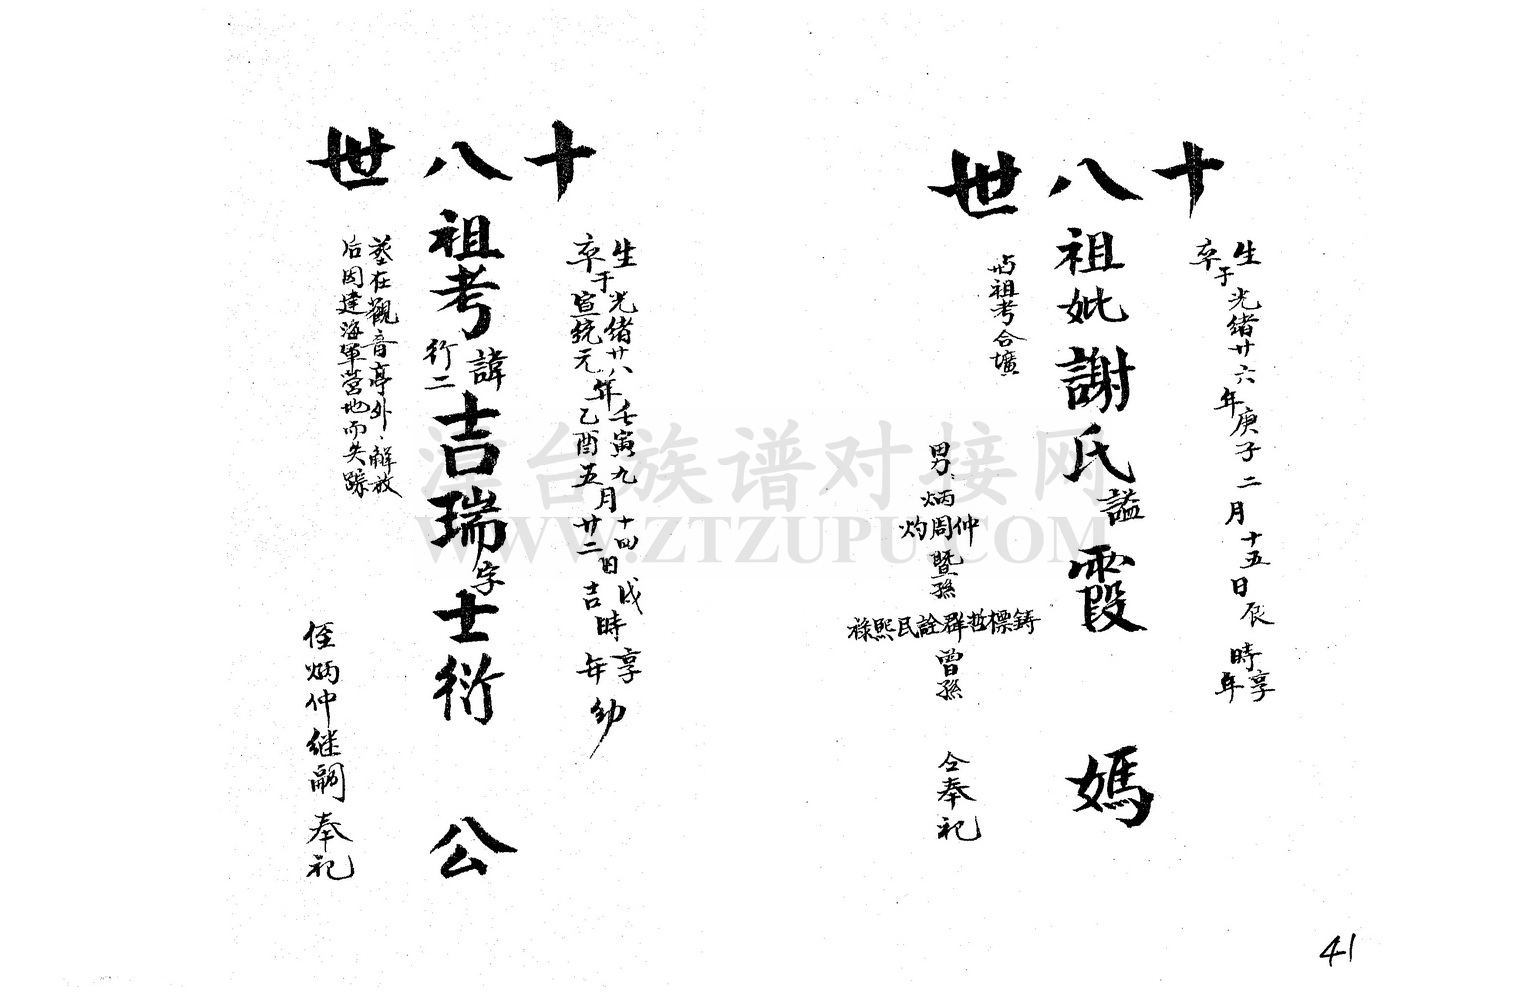 十八世
生于光緒廿六年庚子二月十五日辰時享
卒 年
祖妣謝氏諡霞媽
与祖考合壙
男炳仲周灼暨孫鋳標哲群詮民熙祿曾孫仝奉祀
十八世
生于光緒廿八年壬寅九月十四日戌時享
卒于宣統元年乙酉五月廿二日吉 年幼
祖考諱吉瑞字士衍公
行二
塟在觀音亭外,解放
后因建海軍营地而失踪
侄炳仲继嗣奉祀
41
漳台族谱对接网
WWW.ZTZUPU.COM